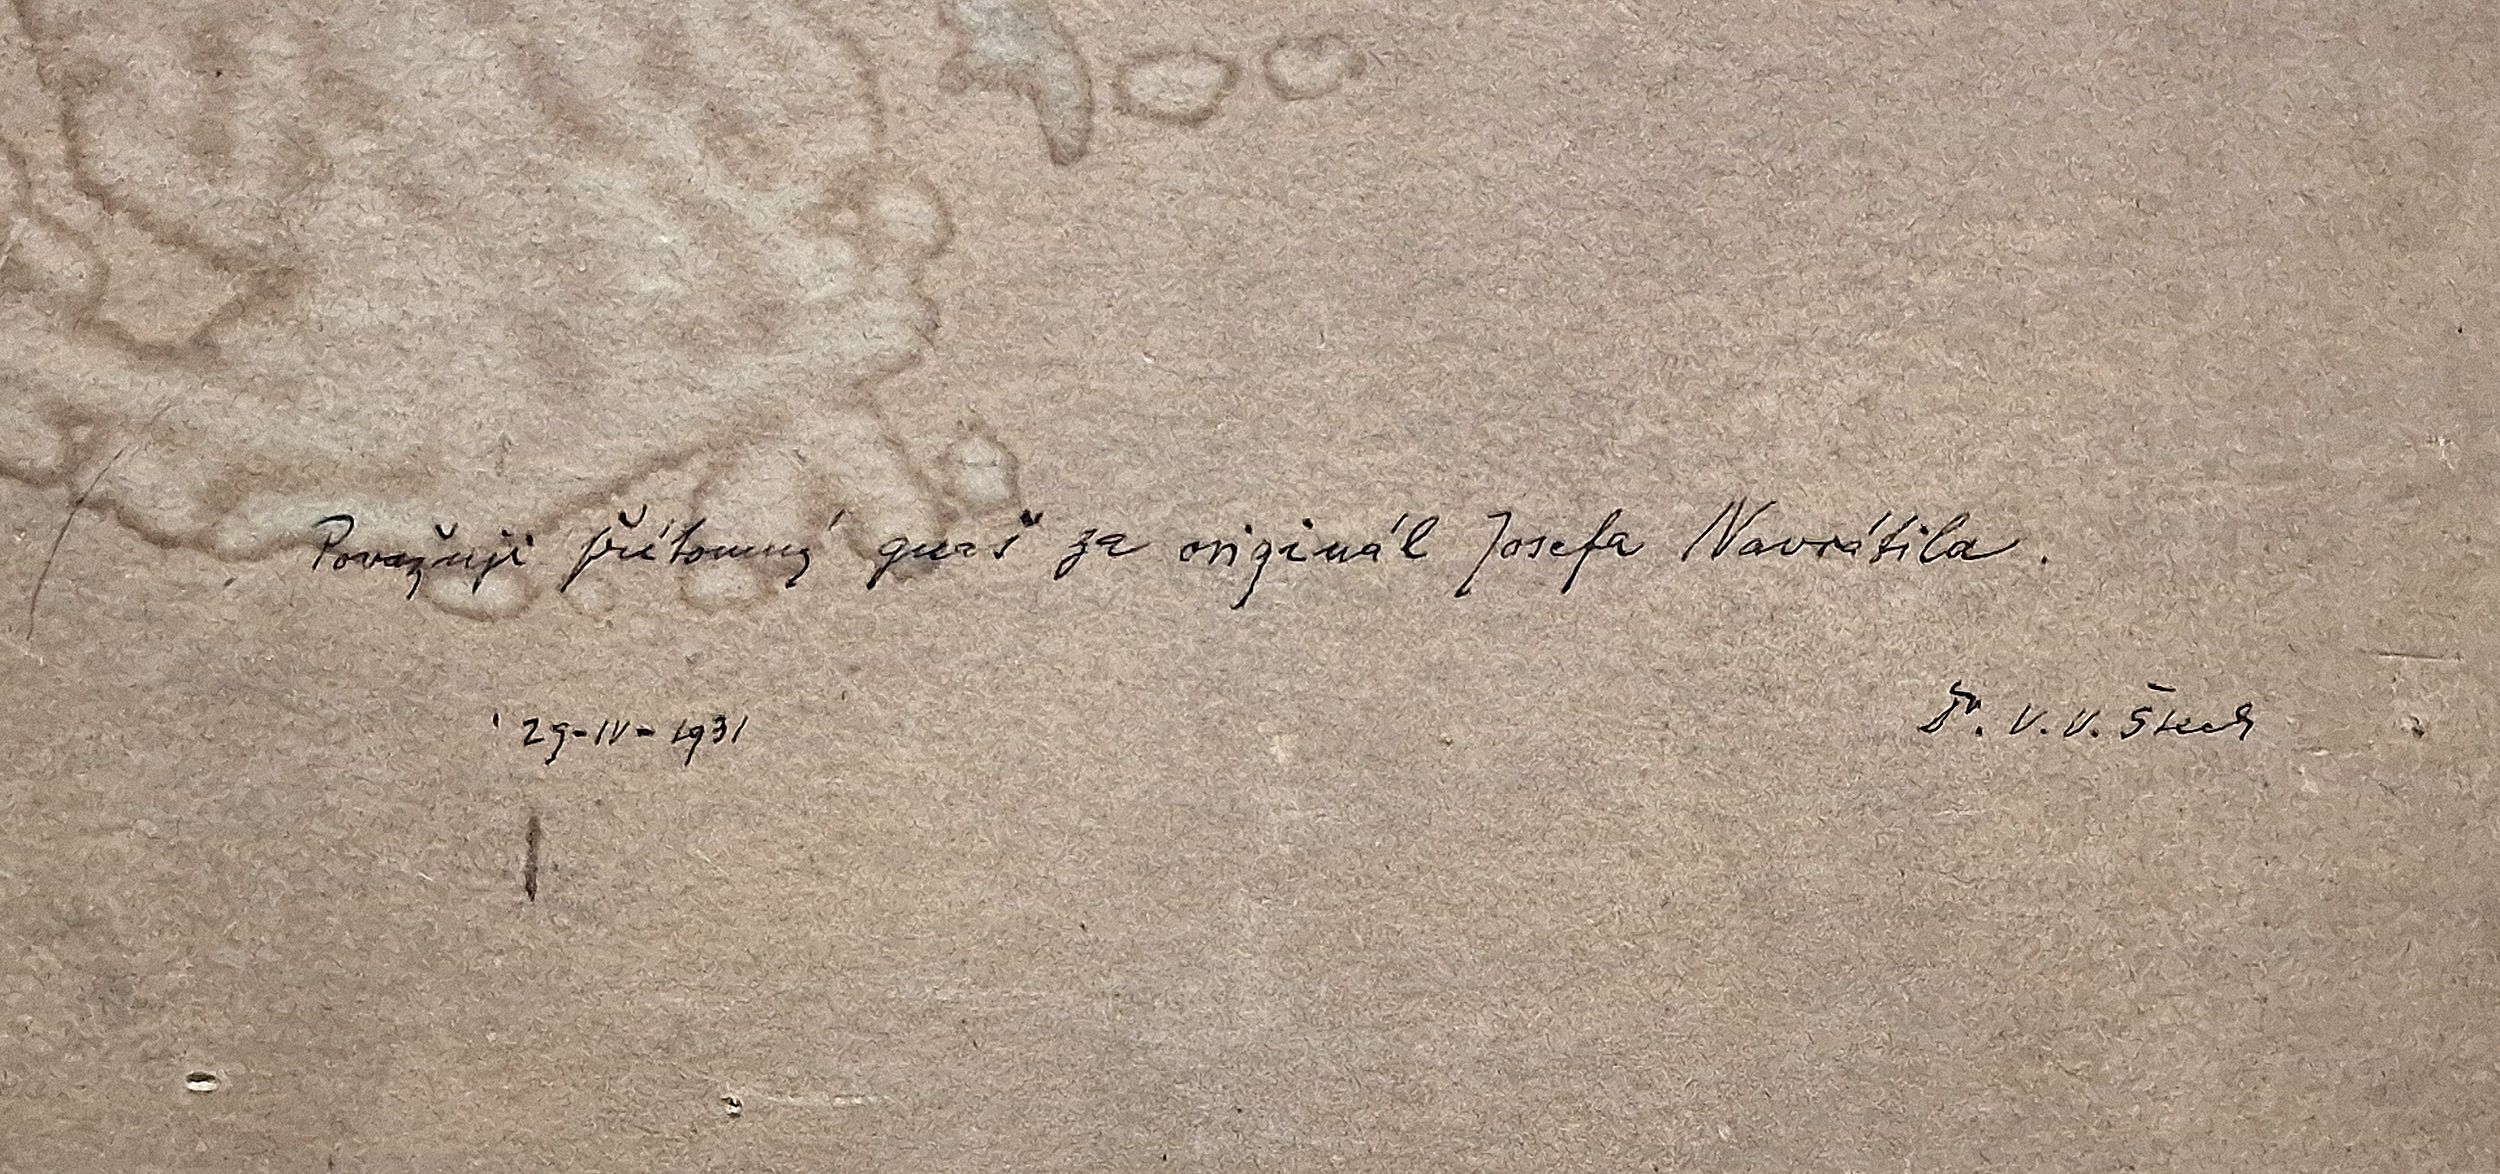 Považuji přítomný guaš za originál Josefa Navrátila.
29-IV-1931
Dr. V. V. Štech